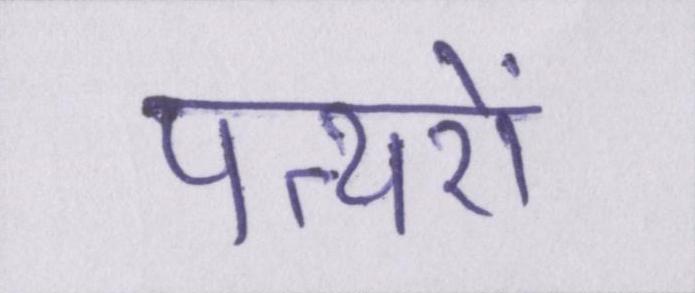 पत्थरों